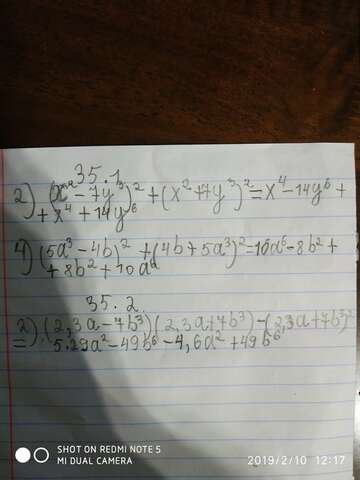 35.1
2) (x²-7y³)²+(x²+7y³)²=x⁴-14y⁶+
+x⁴+14y⁶
4) (5a³-4b)²+(4b+5a³)²=10a⁶-8b²+
+8b²+10a⁶
35.2.
2) (2,3a-7b³)(2,3a+7b³)-(2,3a+7b³)²
= 5.29a²-49b⁶-4,6a²+49b⁶
SHOT ON REDMI NOTE 5
MI DUAL CAMERA
2019/2/10 12:17